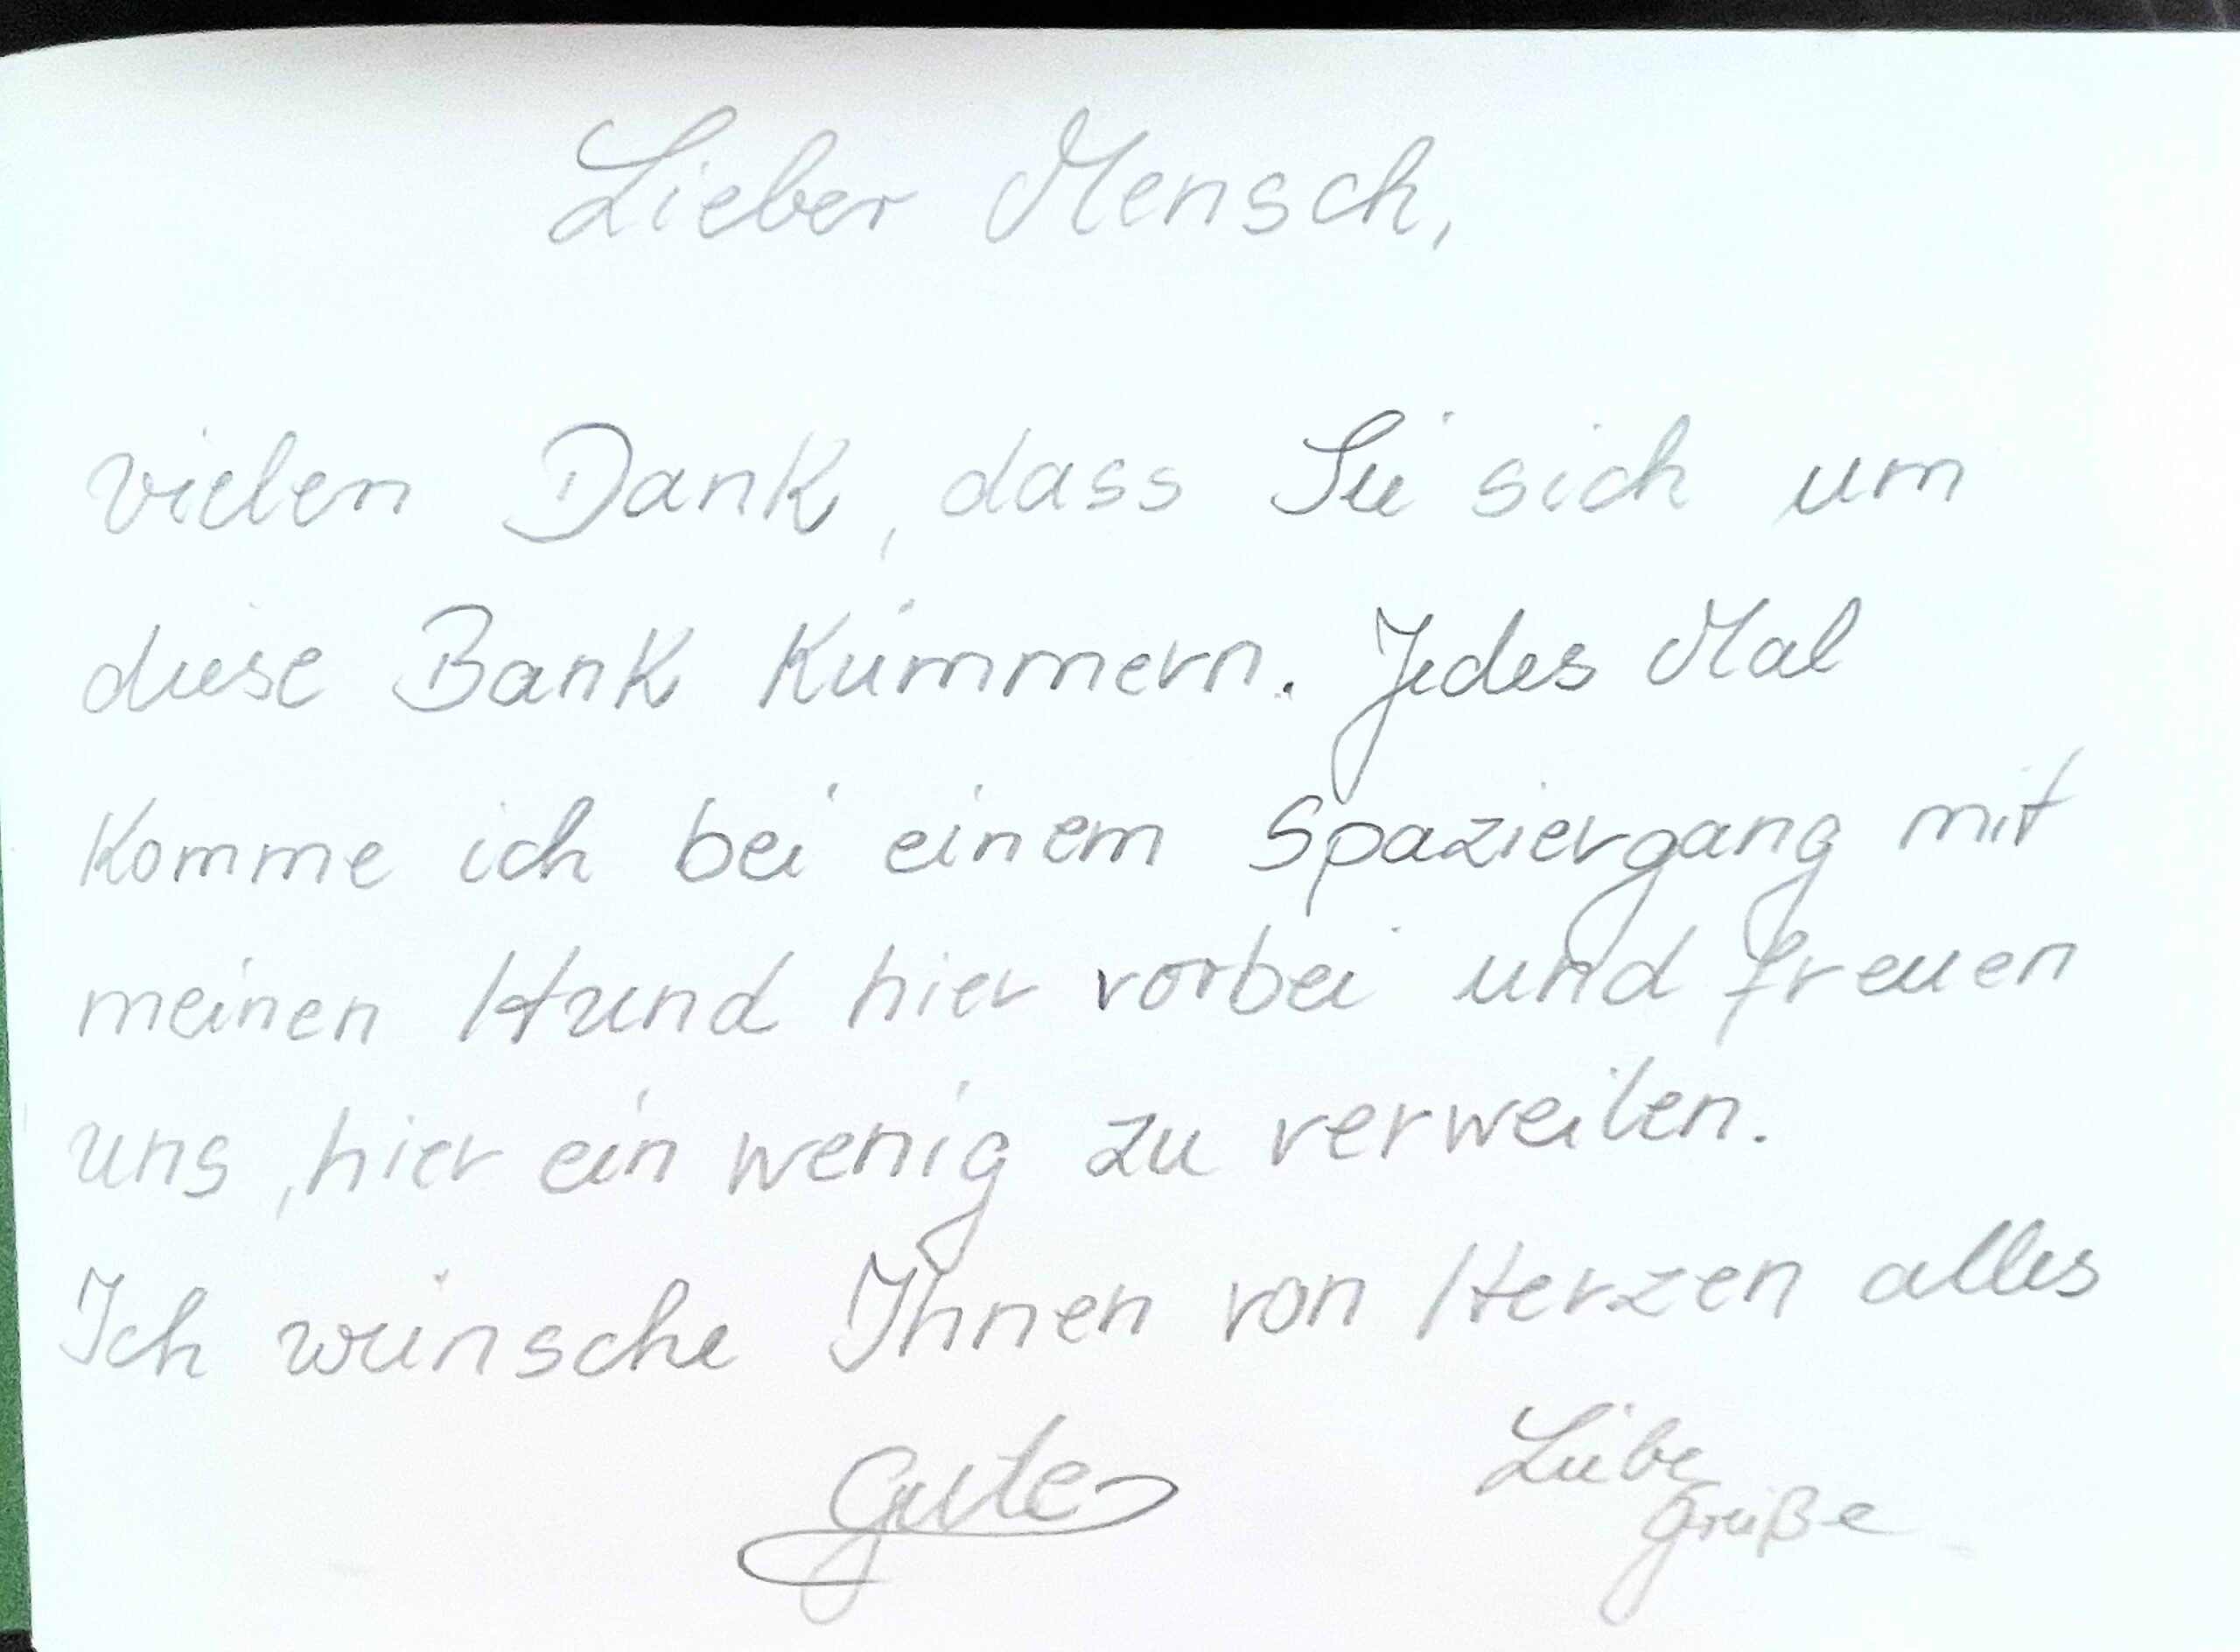 Lieber Mensch,
vielen Dank, dass Sie sich um
diese Bank kümmern. Jedes Mal
komme ich bei einem Spaziergang mit
meinen Hund hier vorbei und freuen
uns, hier ein wenig zu verweilen.
Ich wünsche Ihnen von Herzen alles
Gute
Liebe
Grüße